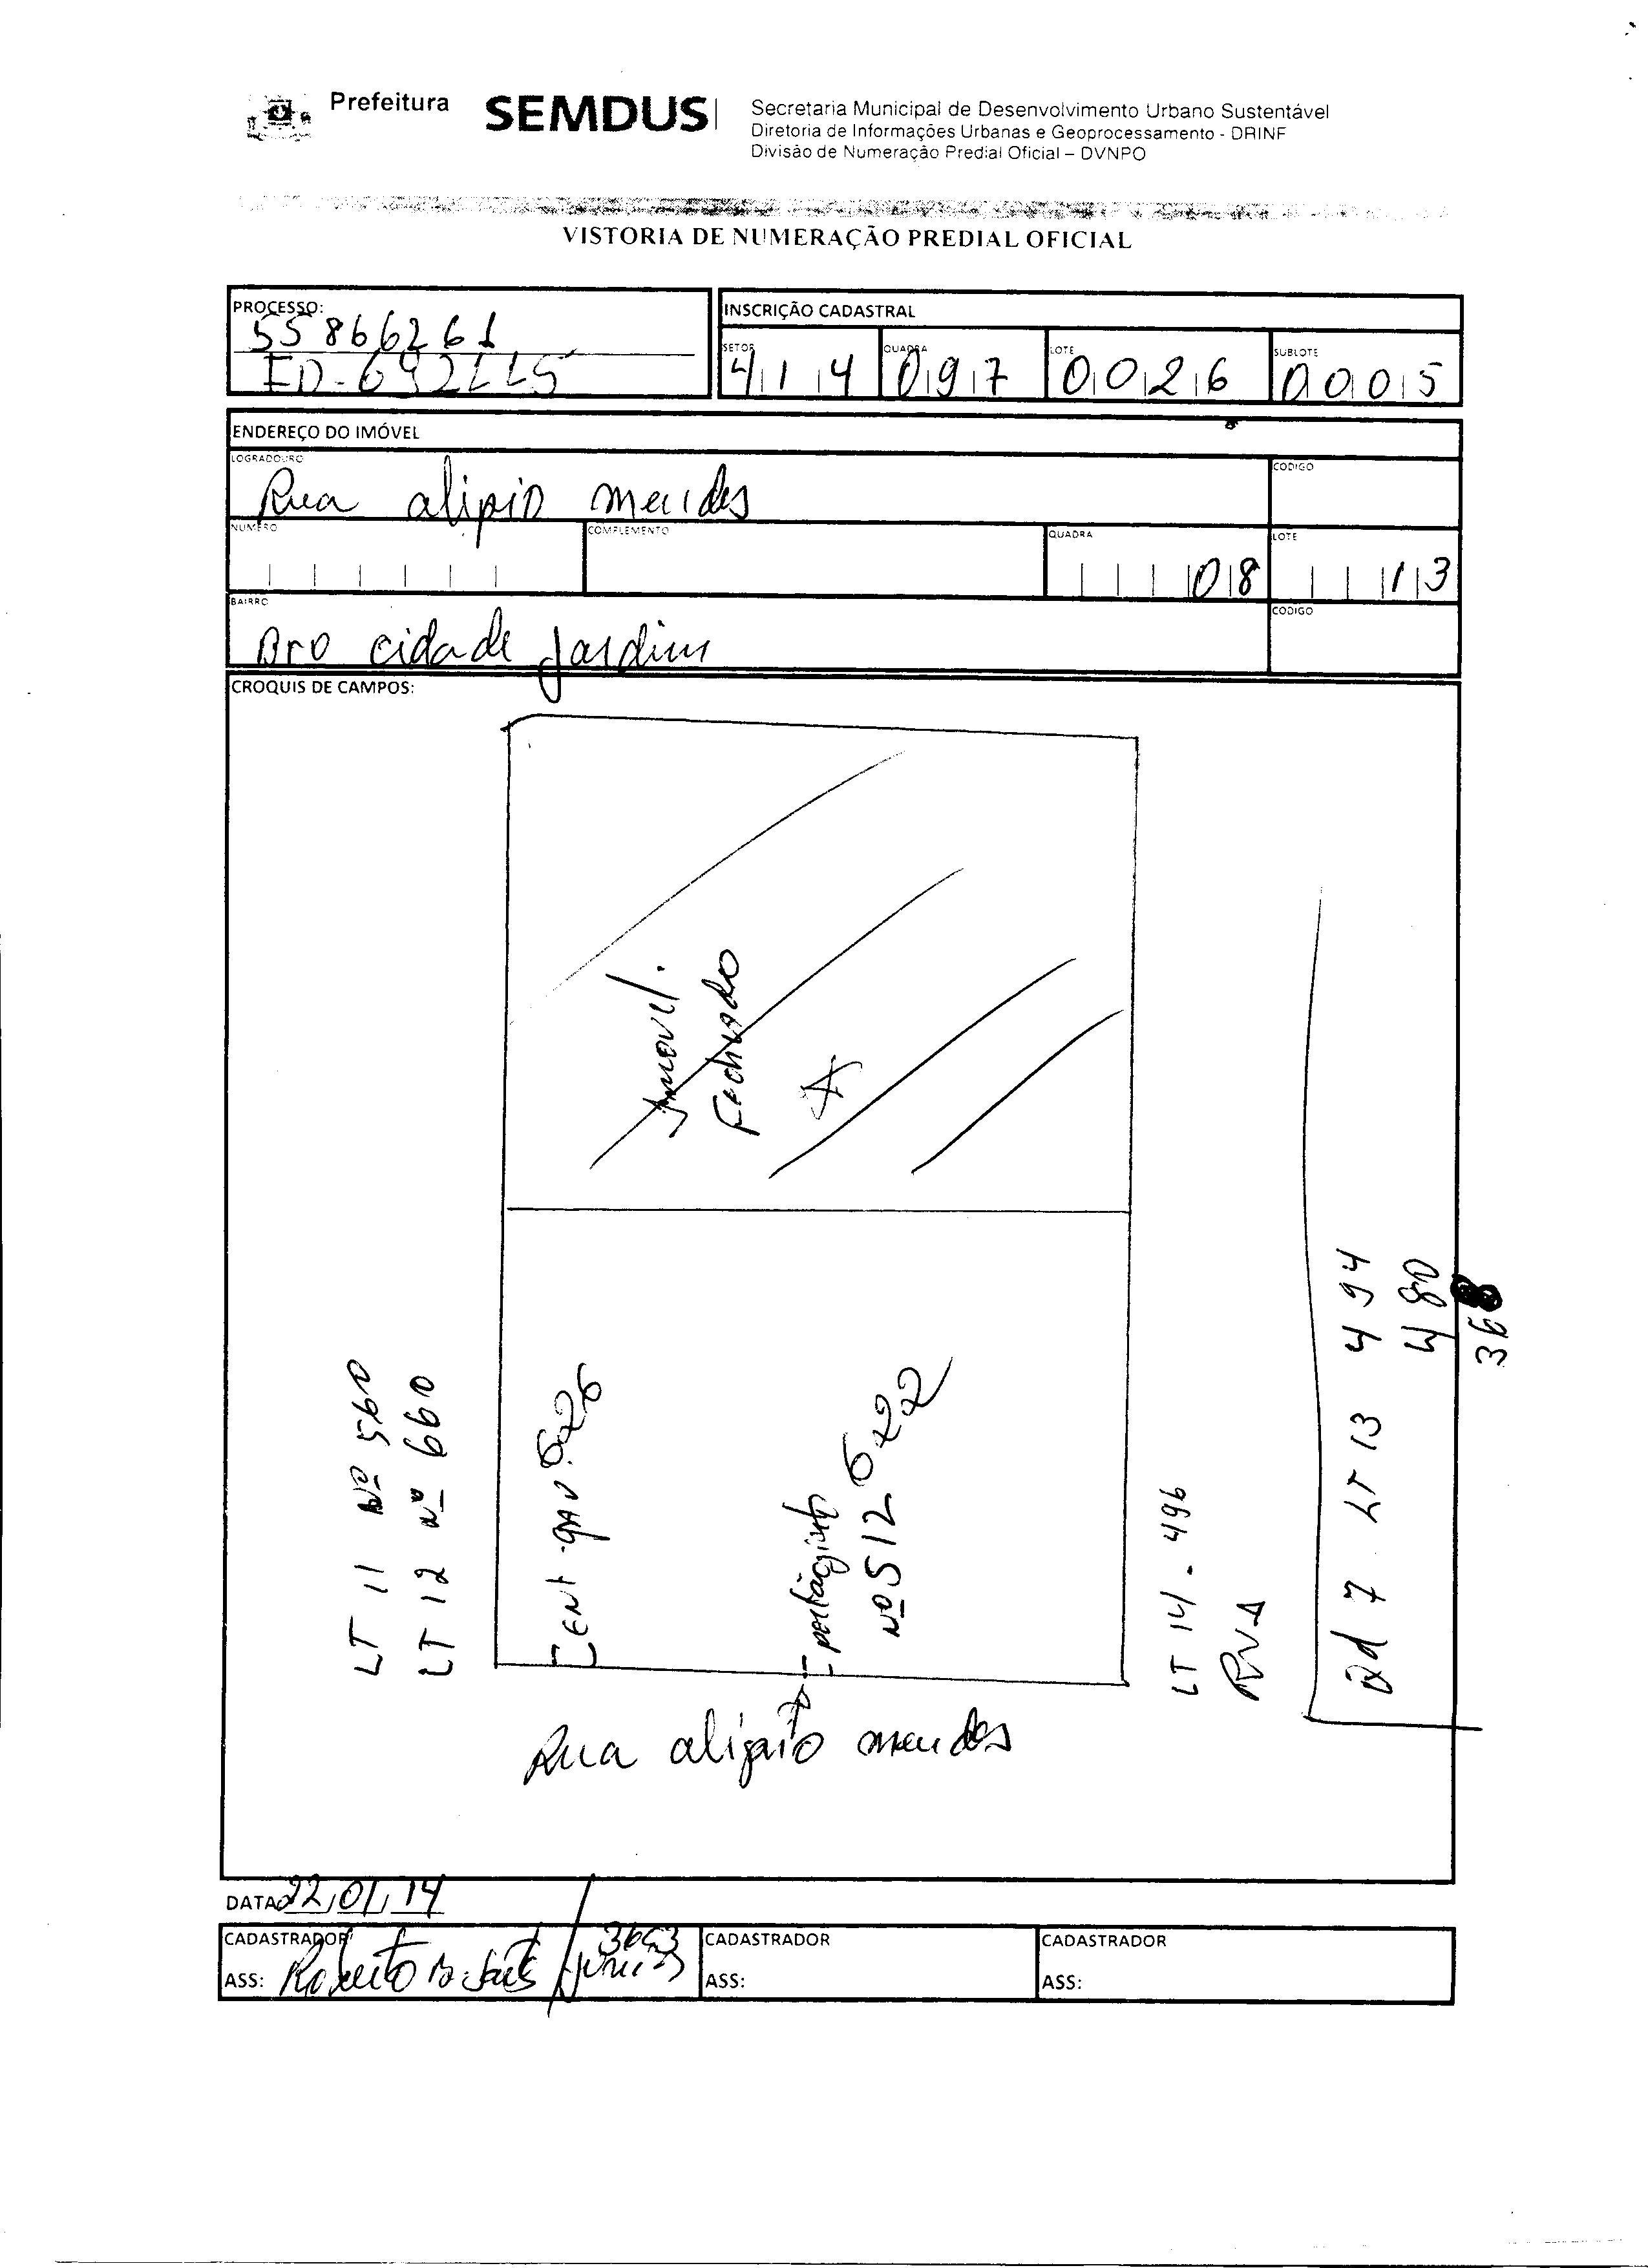 Prefeitura
SEMDUS
Secretaria Municipal de Desenvolvimento Urbano Sustentável
Diretoria de Informações Urbanas e Geoprocessamento - DRINF
Divisão de Numeração Predial Oficial – DVNPO
VISTORIA DE NUMERAÇÃO PREDIAL OFICIAL
PROCESSO:
55866261
INSCRIÇÃO CADASTRAL
SETOR QUADRA LOTE SUBLOTE
414 097 0026 0005
ENDEREÇO DO IMÓVEL
LOGRADOURO CODIGO
Rua alipio mendes
NUMERO COMPLEMENTO QUADRA LOTE
08 13
BAIRRO CODIGO
Bro cidade Jardim
CROQUIS DE CAMPOS:
Imovel.
Fechado
LT 11 Nº 560
LT 12 nº 660
Nº 512
LT 14 - 496
RVA
Qd 7 LT 13 494
480
368
Rua alipio mendes
DATA 22/01/14
CADASTRADOR CADASTRADOR CADASTRADOR
ASS: Roberto ASS: ASS: